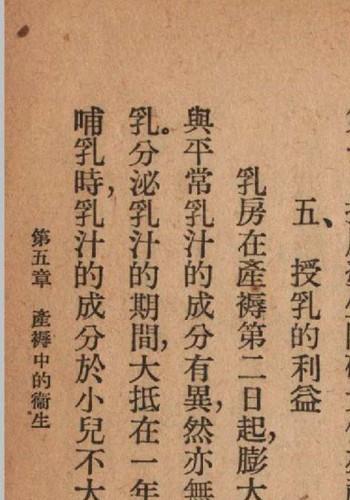 五、授乳的利益
乳房在產褥第二日起,膨大
與平常乳汁的成分有異,然亦無
乳。分泌乳汁的期間,大抵在一年
哺乳時,乳汁的成分於小兒不大
第五章 產褥中的衞生